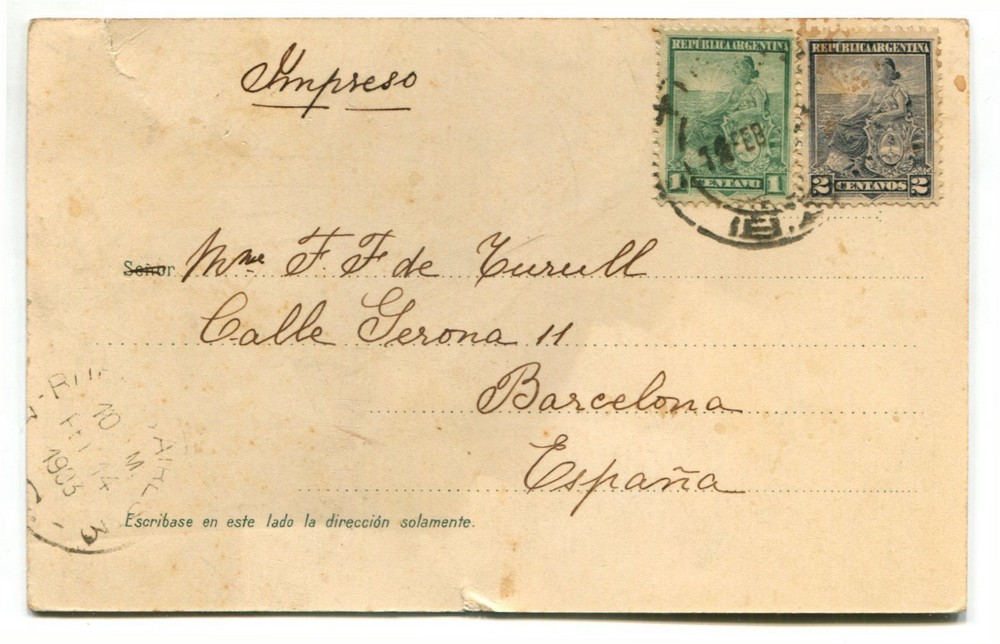 Impreso
REPÚBLICA ARGENTINA
1 CENTAVO 1
REPÚBLICA ARGENTINA
2 CENTAVOS 2
FEB
Señor Mme F F de Turull
Calle Gerona 11
Barcelona
España
10
14
1903
3
Escríbase en este lado la dirección solamente.